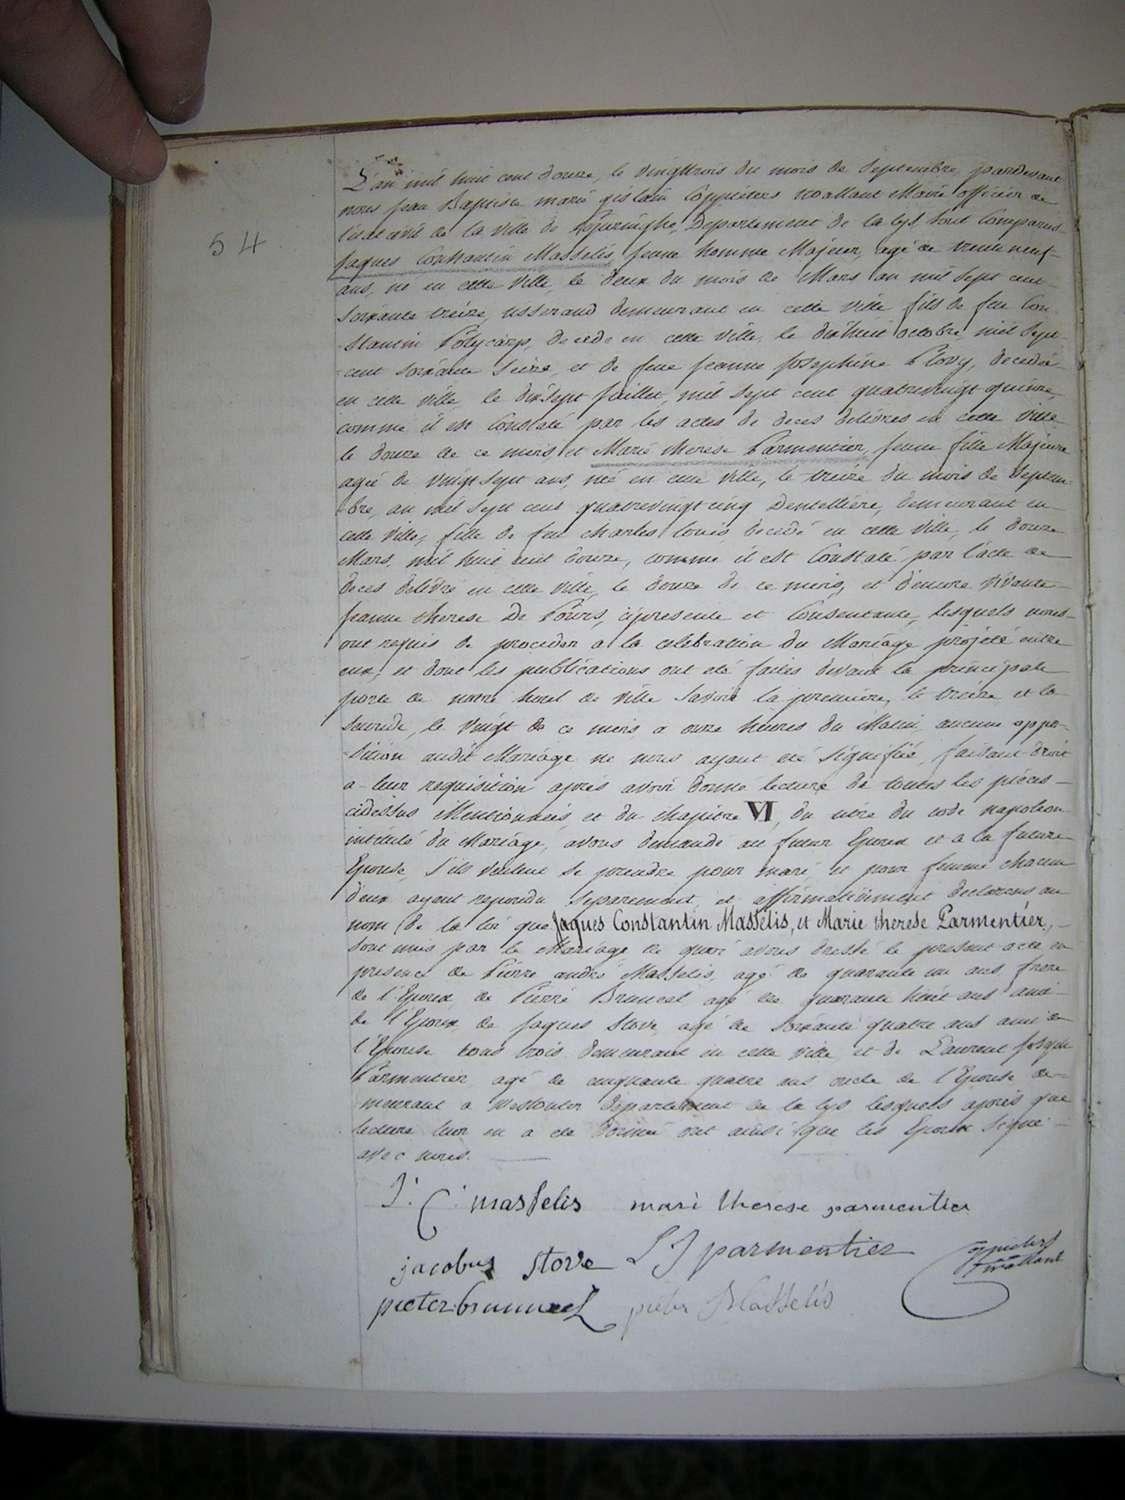 54
L'an mil huit cent douze, le vingttrois du mois de Septembre, pardevant
nous jean Baptiste marie gislain Coppieters wallant Maire officier de
l'etat civil de la ville de Poperinghe, Departement de la Lys sont Comparus
Jaques Constantin Masselis, jeune homme Majeur, agé de trente neuf
ans, né en cette Ville, le deux du mois de Mars an mil sept cent
soixante treize, tisserand demeurant en cette Ville fils de feu Con-
-stantin Polycarp, decedé en cette Ville, le dixhuit octobre, mil sept
-cent soixante seize, et de feue jeanne Josephine Flovy, decedée
en cette Ville, le dixsept juillet, mil sept cent quatrevingt quinze,
comme il est Constaté par les actes de deces delivrés en cette Ville
le douze de ce mois et Marie therese Parmentier, jeune fille Majeure
agée de vingt sept ans, née en cette Ville, le treize du mois de Septem-
-bre, an mil sept cent quatrevingt cinq Dentellière, demeurant en
cette Ville, fille de feu Charles Louis decedé en cette Ville, le douze
Mars, mil huit cent douze, comme il est Constaté par l'acte de
deces delivré en cette Ville, le douze de ce mois, et d'encore Vivante
jeanne therese De Pours, ci presente et Consentante, lesquels nous
ont requis de proceder a la celebration du Mariage projeté entre
eux, et dont les publications ont eté faites devant la principale
porte de notre hotel de Ville Savoir la premiere, le treize et la
seconde, le Vingt de ce mois a onze heures du Matin, aucune oppo-
-sition audit Mariage ne nous ayant eté signifiée, faisant droit
a leur requisition aprés avoir donné lecture de toutes les piéces
cidessus Mentionnées, et du chapitre VI, du titre du code napoleon
intitulé du Mariage, avons demandé au futur Epoux et a la future
Epouse, s'ils veulent se prendre pour mari et pour femme chacun
d'eux ayant repondu separement et affirmativement declarons au
nom de la loi que Jaques Constantin Masselis, et Marie therese Parmentier,
sont unis par le Mariage de quoi avons dressé le present acte en
presence de Pierre andré Masselis, agé de quarante un ans, frere
de l'Epoux de Pierre Bruneel agé de quarante huit ans ami
de l'Epoux de Jaques Stove agé de soixante quatre ans ami de
l'Epouse tous trois demeurant en cette Ville et de Laurent joseph
Parmentier agé de cinquante quatre ans oncle de l'Epouse de-
-meurant a Westouter departement de la Lys lesquels aprés que
lecture leur en a eté donné ont ainsi que les Epoux Signé
avec nous.
J: C: masselis mari therese parmentier
jacobus stove L J parmentier Coppieters
pieter bruneel pieter Masselis wallant